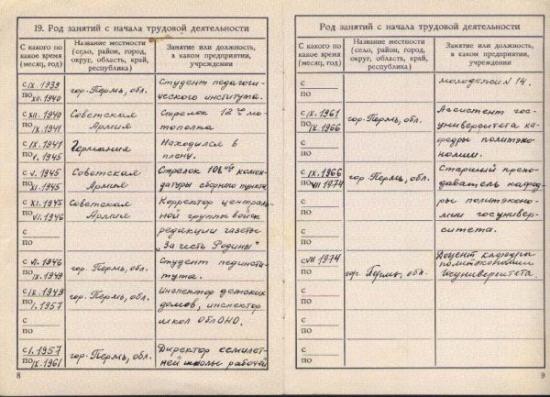 19. Род занятий с начала трудовой деятельности
С какого по какое время (месяц, год)
Название местности (село, район, город, округ, область, край, республика)
Занятие или должность, в каком предприятии, учреждении
с IX.1939 гор. Пермь, обл. Студент педагоги-
по XII.1940 ческого института.
с XII.1940 Советская Стрелок 12го мо-
по IX.1941 Армия тополка
с IX.1941 Германия Находился в
по V.1945 плену.
с V.1945 Советская Стрелок 106ой комен-
по XI.1945 Армия датуры сборного пункта
с XI.1945 Советская Корректор централь-
по VI.1946 Армия ной группы войск
с редакции газеты
по „За честь Родины"
с VI.1946 гор. Пермь, обл. Студент пединсти-
по IX.1949 тута.
с IX.1949 гор. Пермь, обл. Инспектор детских
по I.1957 домов, инспектор
с школ облОНО.
по
с I.1957 гор. Пермь, обл. Директор семилет-
по IX.1961 ней школы рабочей
8
Род занятий с начала трудовой деятельности
С какого по какое время (месяц, год)
Название местности (село, район, город, округ, область, край, республика)
Занятие или должность, в каком предприятии, учреждении
с молодежи N 14.
по
с IX.1961 гор. Пермь, обл. Ассистент гос-
по IX.1966 университета ка-
с федры политэко-
по номии.
с IX.1966 гор. Пермь, обл. Старший препо-
по VII 1974 даватель кафед-
с ры политэконо-
по мии госунивер-
с ситета.
по
с VII 1974 гор. Пермь, обл. Доцент кафедры
по политэкономии
с госуниверситета.
по
с
по
с
по
9